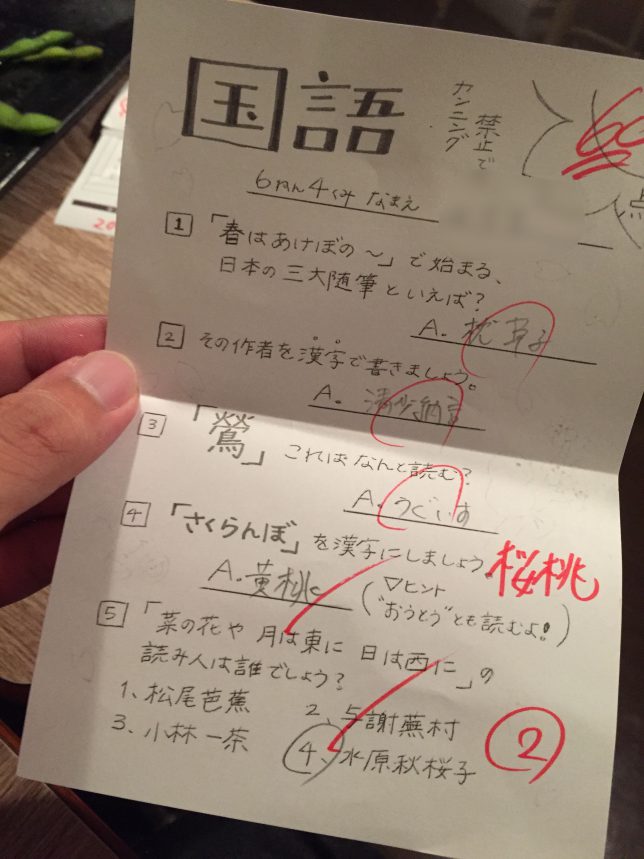 国語
禁止で
カンニング
60
点
6ねん4くみ なまえ
1 「春はあけぼの〜」で始まる、
日本の三大随筆といえば?
A. 枕草子
2 その作者を漢字で書きましょう。
A. 清少納言
3 「鶯」これはなんと読む?
A. うぐいす
4 「さくらんぼ」を漢字にしましょう。桜桃
A. 黄桃
▽ヒント
("おうとう"とも読むよ!)
5 「菜の花や 月は東に 日は西に」の
読み人は誰でしょう?
1、松尾芭蕉 2、与謝蕪村
3、小林一茶 4、水原秋桜子
2